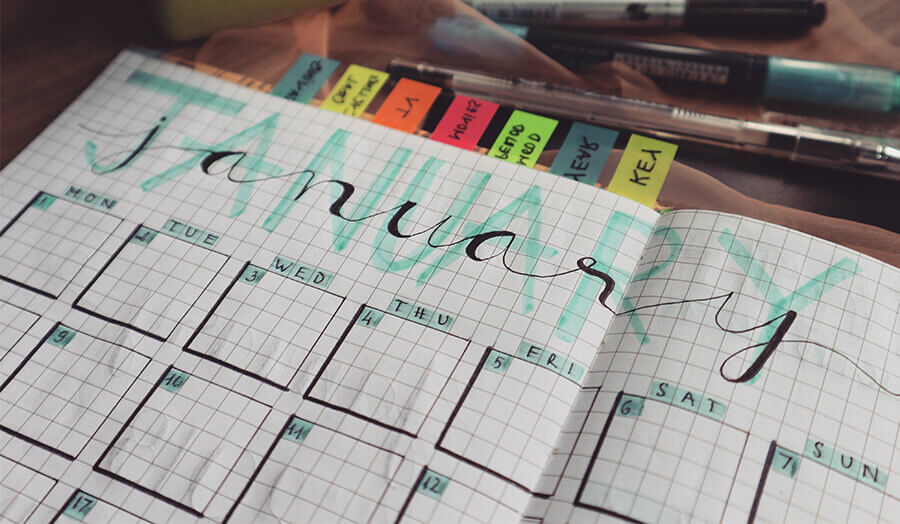 MOVIES
MOOD
YEAR
KEY
JANUARY
january
MON TUE WED THU FRI SAT SUN
1 2 3 4 5 6 7
9 10 11 12
17